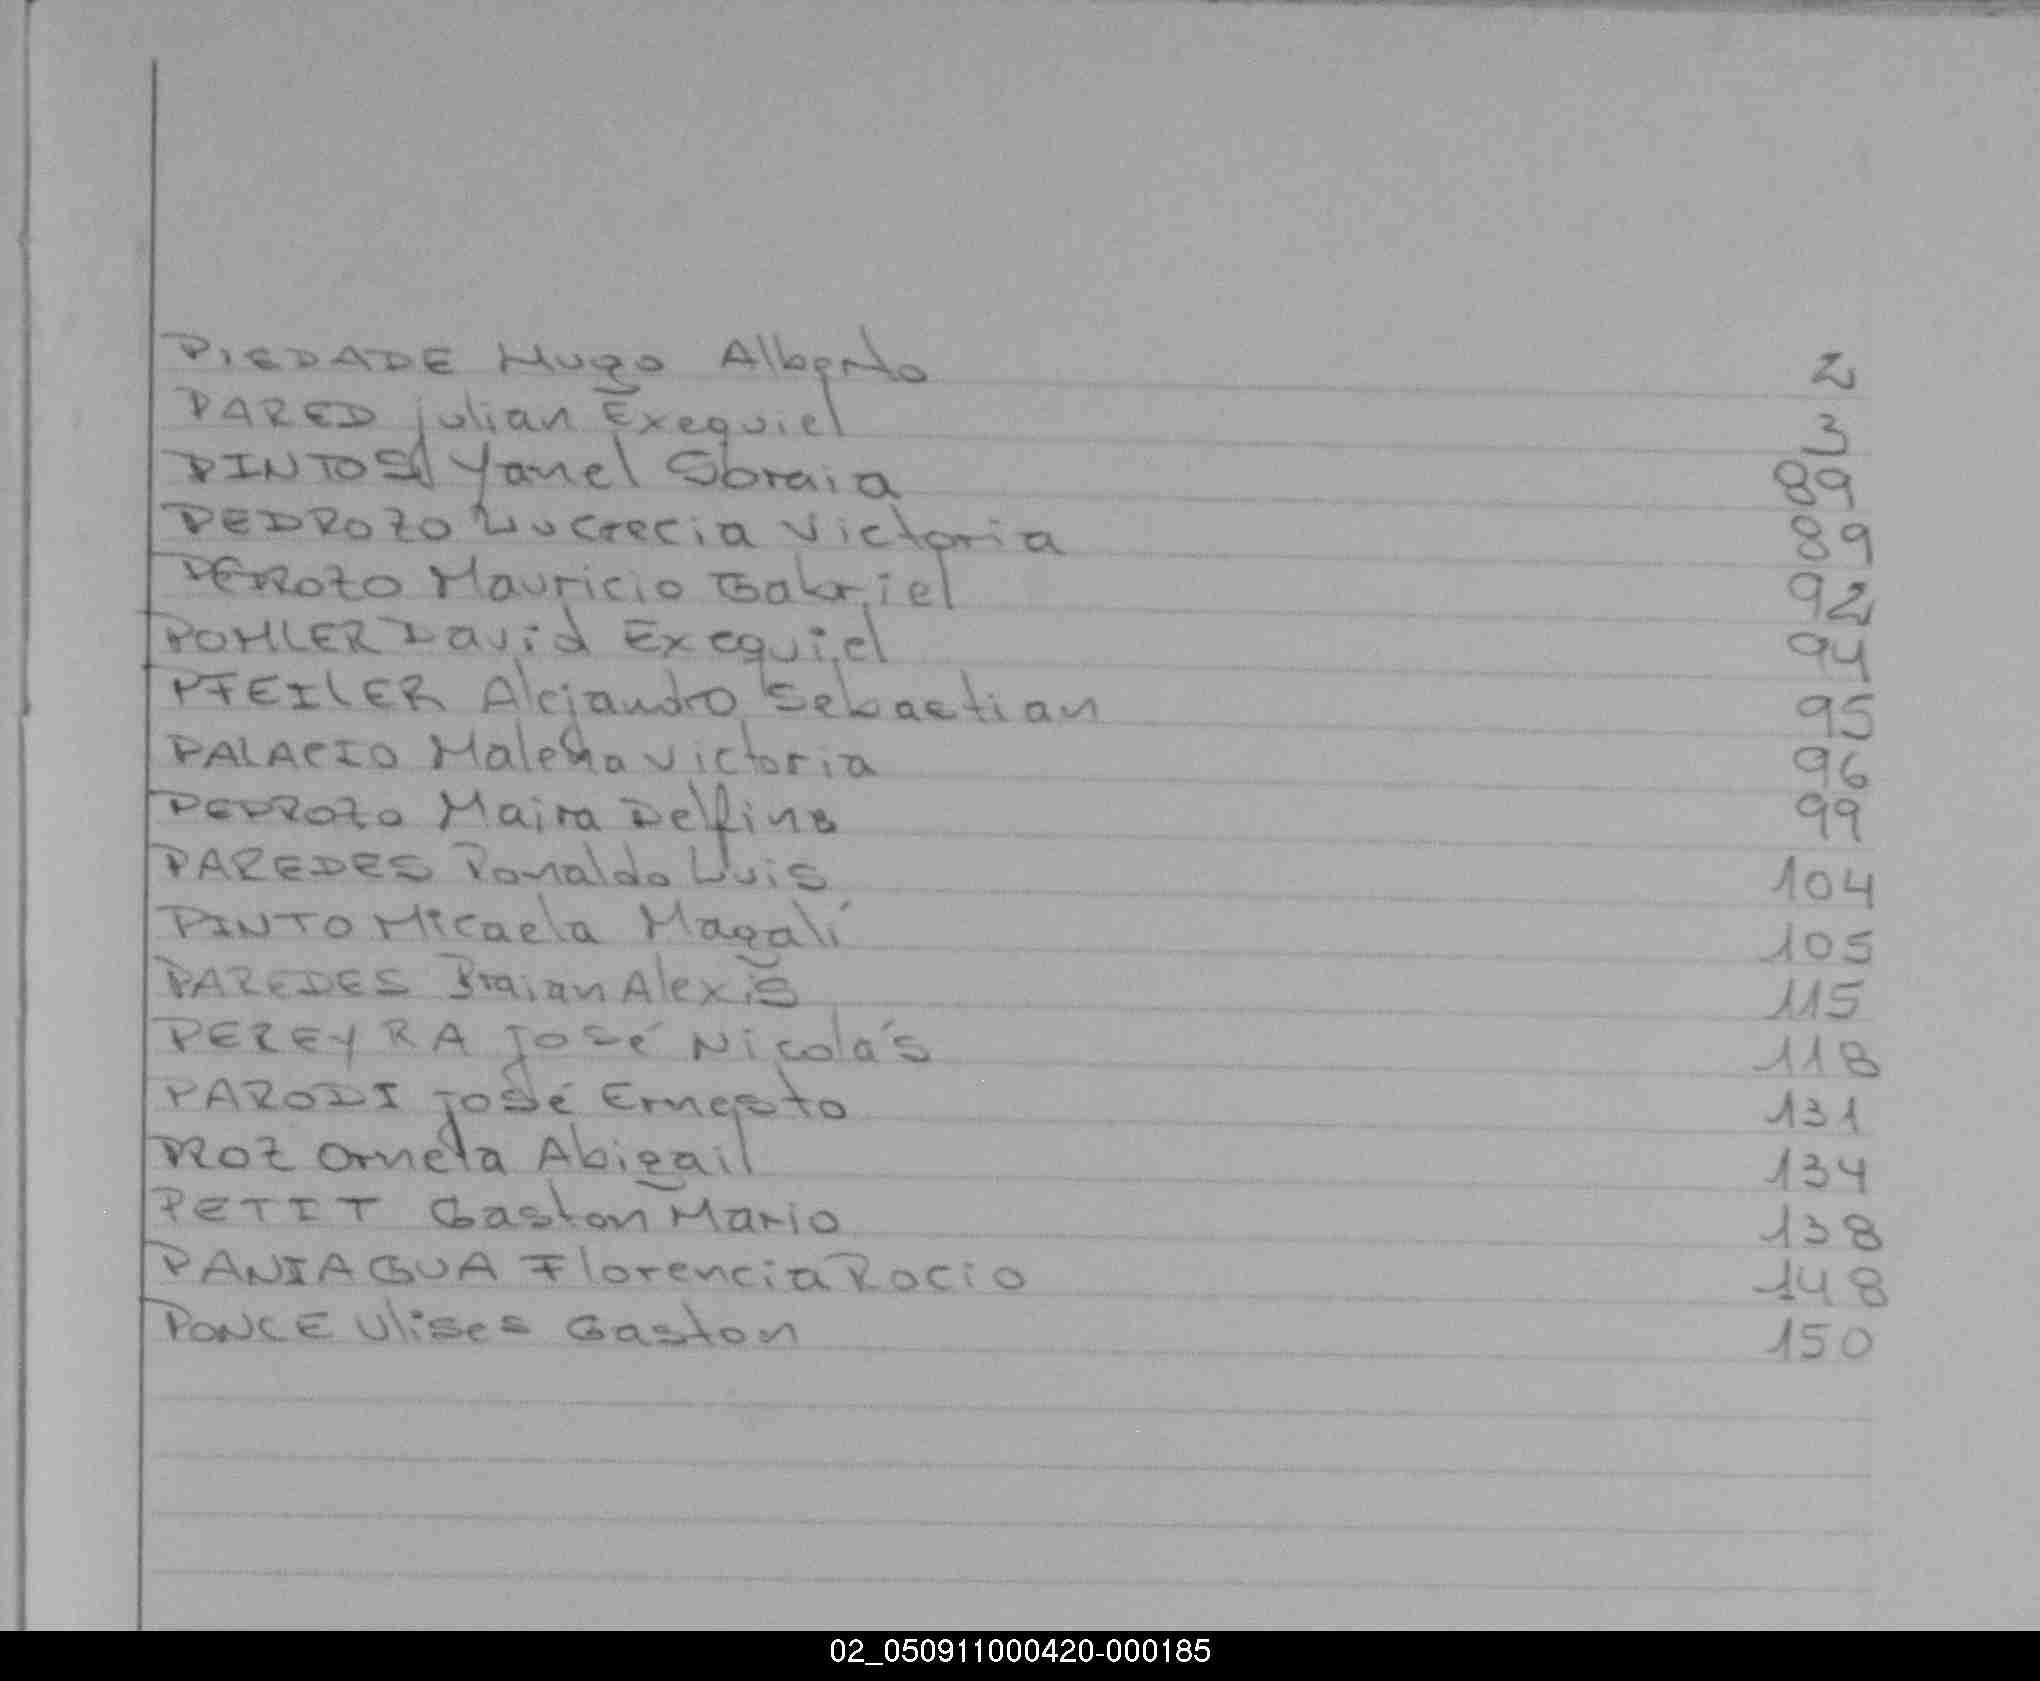 PIEDADE Hugo Alberto 2
PARED julian Exequiel 3
PINTOS Yanel Soraia 89
PEDROZO Lucrecia Victoria 89
PEROZO Mauricio Gabriel 92
POHLER David Exequiel 94
PFEILER Alejandro Sebastian 95
PALACIO Malena victoria 96
PEDROZO Maira Delfina 99
PAREDES Ronaldo Luis 104
PINTO Micaela Magalí 105
PAREDES Braian Alexis 115
PEREYRA José Nicolás 118
PARODI José Ernesto 131
PROZ Ornela Abigail 134
PETIT Gaston Mario 138
PANIAGUA Florencia Rocio 148
PONCE Ulises Gaston 150
02_050911000420-000185